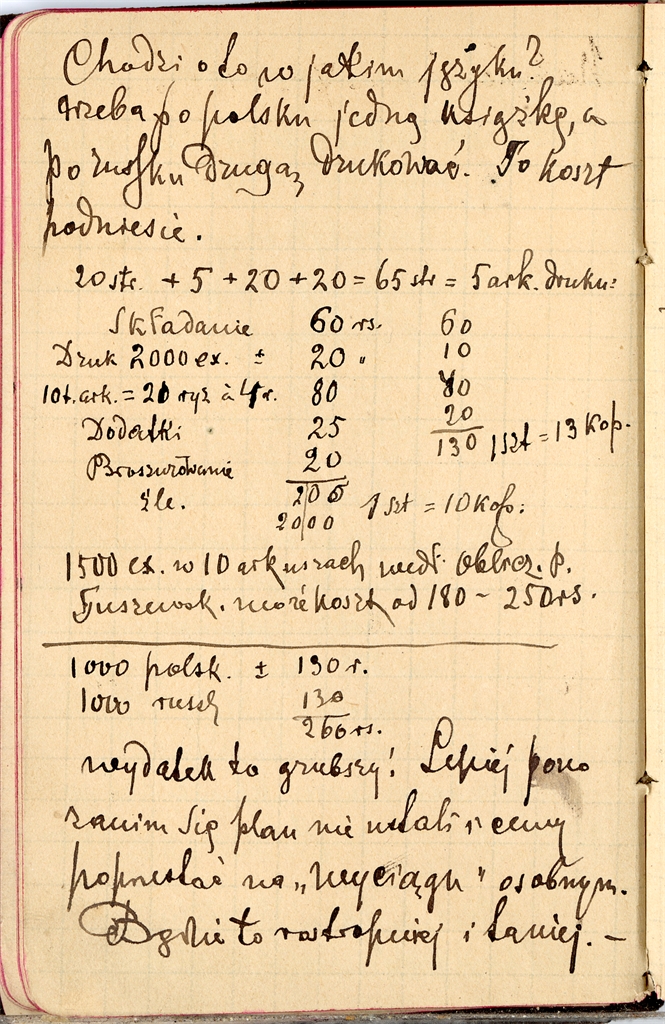 Chodzi o to w jakim języku?
trzeba po polsku jedną książkę, a
po rusku drugą drukować. To koszt
podniesie.
20 str. + 5 + 20 + 20 = 65 str = 5 ark. druku:
Składanie 60 rs. 60
Druk 2000 ex. ± 20 " 10
10 t. ark. = 20 ryz à 4 r. 80 40
Dodatki 25 20
130 1 szt = 13 kop.
Broszurowanie 20
źle. 205 1 szt = 10 kop:
2000
1500 ex. w 10 arkuszach wedł. oblicz. p.
może koszt. od 180 - 250 rs.
1000 polsk. ± 130 r.
1000 rusch 130
260 rs.
wydatek to grubszy! Lepiej
zanim się plan nie ustali i ceny
poprzestać na „wyciągu" osobnym.
Będzie to roztropniej i taniej. -